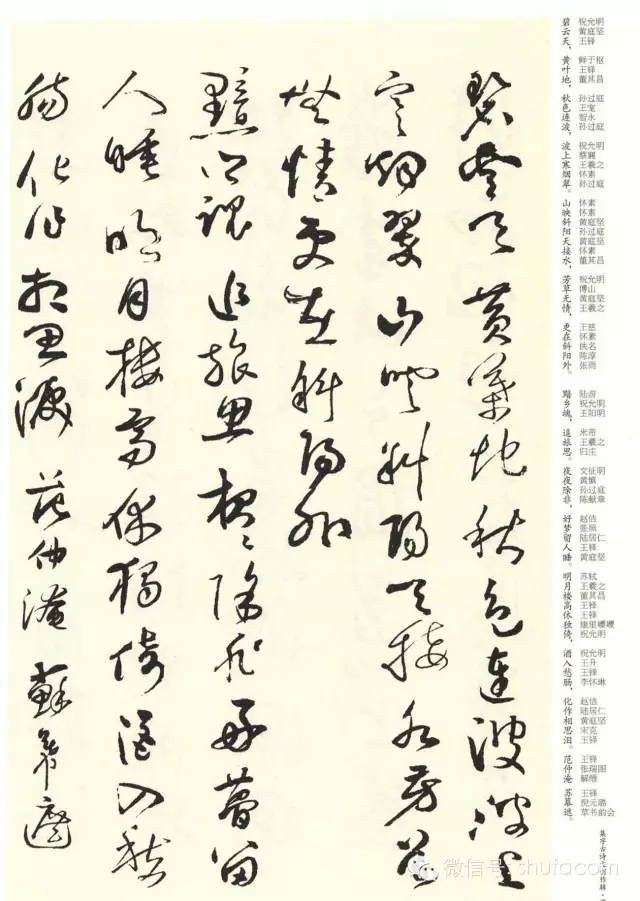 碧雲天黃葉地秋色連波波上
寒烟翠山映斜陽天接水芳草
無情更在斜陽外
黯鄉魂追旅思夜〻除非好夢留
人睡明月樓高休獨倚酒入愁
腸化作相思淚 范仲淹 蘇幕遮
碧云天， 祝允明 黄庭坚 王铎
黄叶地， 鲜于枢 王铎 董其昌
秋色连波， 孙过庭 王宠 智永 孙过庭
波上寒烟翠。 祝允明 蔡襄 王羲之 怀素 孙过庭
山映斜阳天接水， 怀素 怀素 黄庭坚 孙过庭 黄庭坚 怀素 董其昌
芳草无情， 祝允明 傅山 黄庭坚 王羲之
更在斜阳外。 王慈 怀素 佚名 陈淳 张雨
黯乡魂， 陆游 祝允明 王阳明
追旅思。 米芾 王羲之 归庄
夜夜除非， 文征明 黄慎 孙过庭 陈献章
好梦留人睡。 赵佶 张照 陆居仁 王铎 黄庭坚
明月楼高休独倚， 苏轼 王羲之 董其昌 王铎 王铎 康里巎巎 祝允明
酒入愁肠， 祝允明 王升 王铎 李怀琳
化作相思泪。 赵佶 陆居仁 黄庭坚 宋克 王铎
范仲淹 王铎 张瑞图 解缙
苏幕遮。 王铎 倪元璐 草书韵会
微信号: shufacom